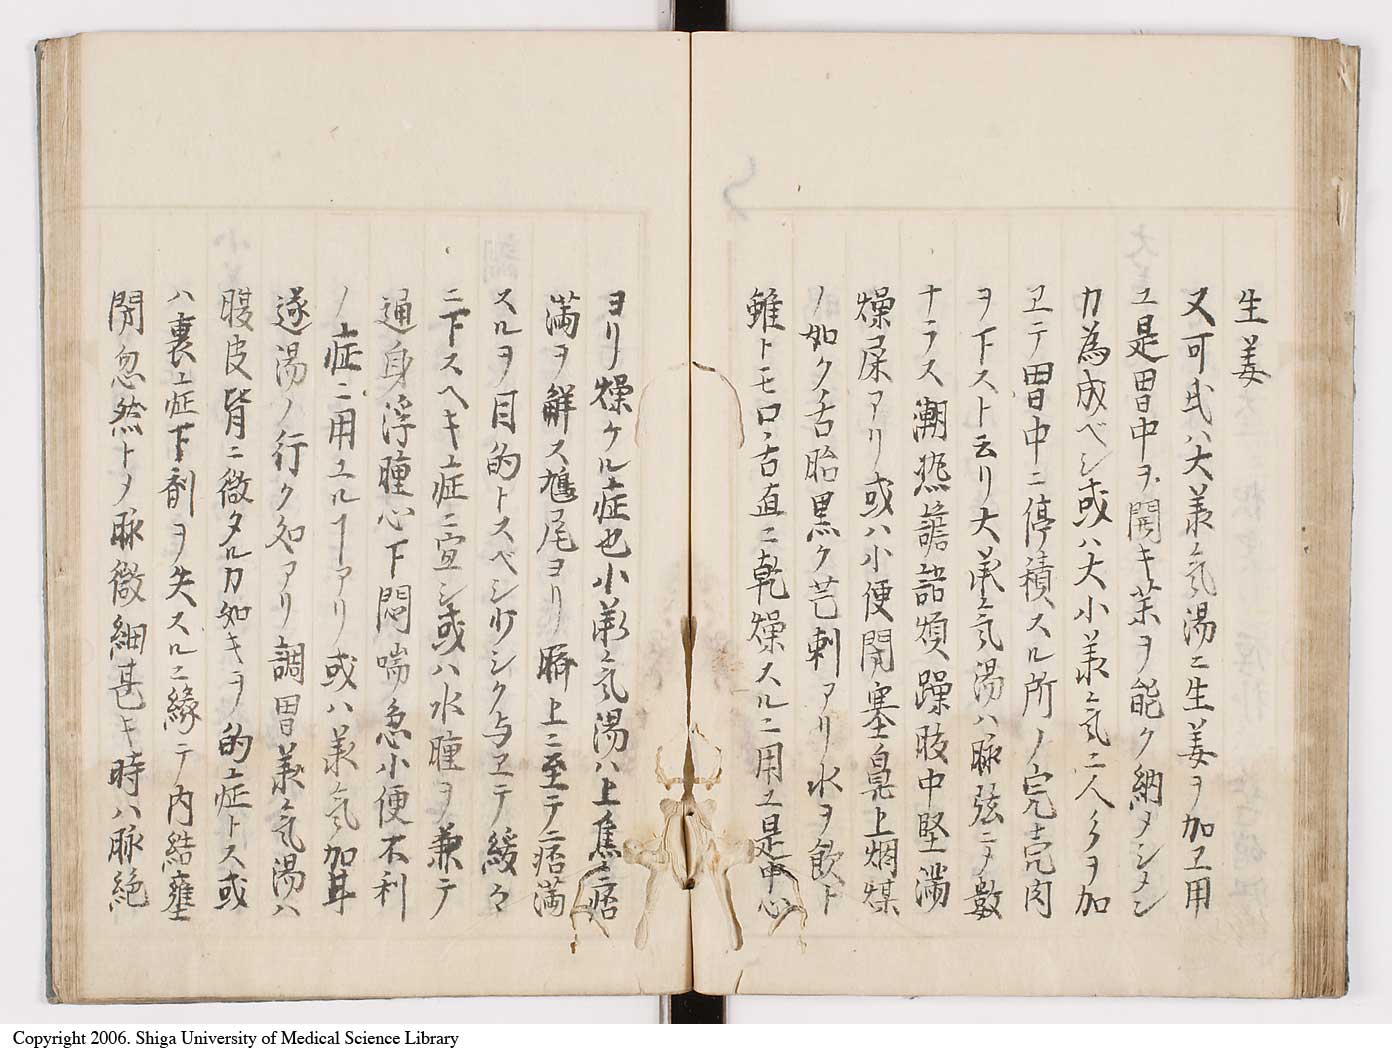 生姜
又可氏ハ大羕气湯ニ生姜ヲ加ヱ用
ユ是胃中ヲ開キ茱ヲ能ク納メシメン
カ為成ベシ或ハ大小羕气ニ人ヲ加
ヱテ胃中ニ停積スル所ノ完壳肉
ヲ下スト云リ大羕气湯ハ脉弦ニメ数
ナラス潮热譫語煩躁肢中堅満
燥屎アリ或ハ小便閉塞鼻上烟煤
ノ如ク舌胎黒ク芒刺アリ水ヲ飲ト
雖トモ口舌直ニ乾燥スルニ用ユ是中心
ヨリ燥ケル症也小羕气湯ハ上焦痞
満ヲ解ス鳩尾ヨリ臍上ニ至テ痞満
スルヲ目的トスベシ少シク与ヱテ緩々
ニ下スヘキ症ニ宜シ或ハ水腫ヲ兼テ
通身浮腫心下悶喘急小便不利
ノ症ニ用ユルヿアリ或ハ羕气加耳
遂湯ノ行ク処アリ調胃羕气湯ハ
腹皮背ニ徹タルカ如キヲ的症トス或
ハ裏症下剤ヲ失スルニ縁テ内結壅
閉忽然トメ脉微細甚キ時ハ脉絶